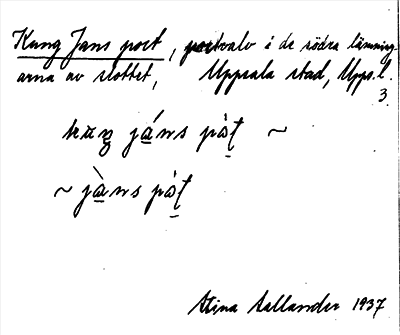 Kung Jans port, portvalv i de södra lämning-
arna av slottet, Uppsala stad, Upps.l.
3.
kuŋ jáns pòʈ ~
~ jàns pòʈ
Stina Sallander 1937